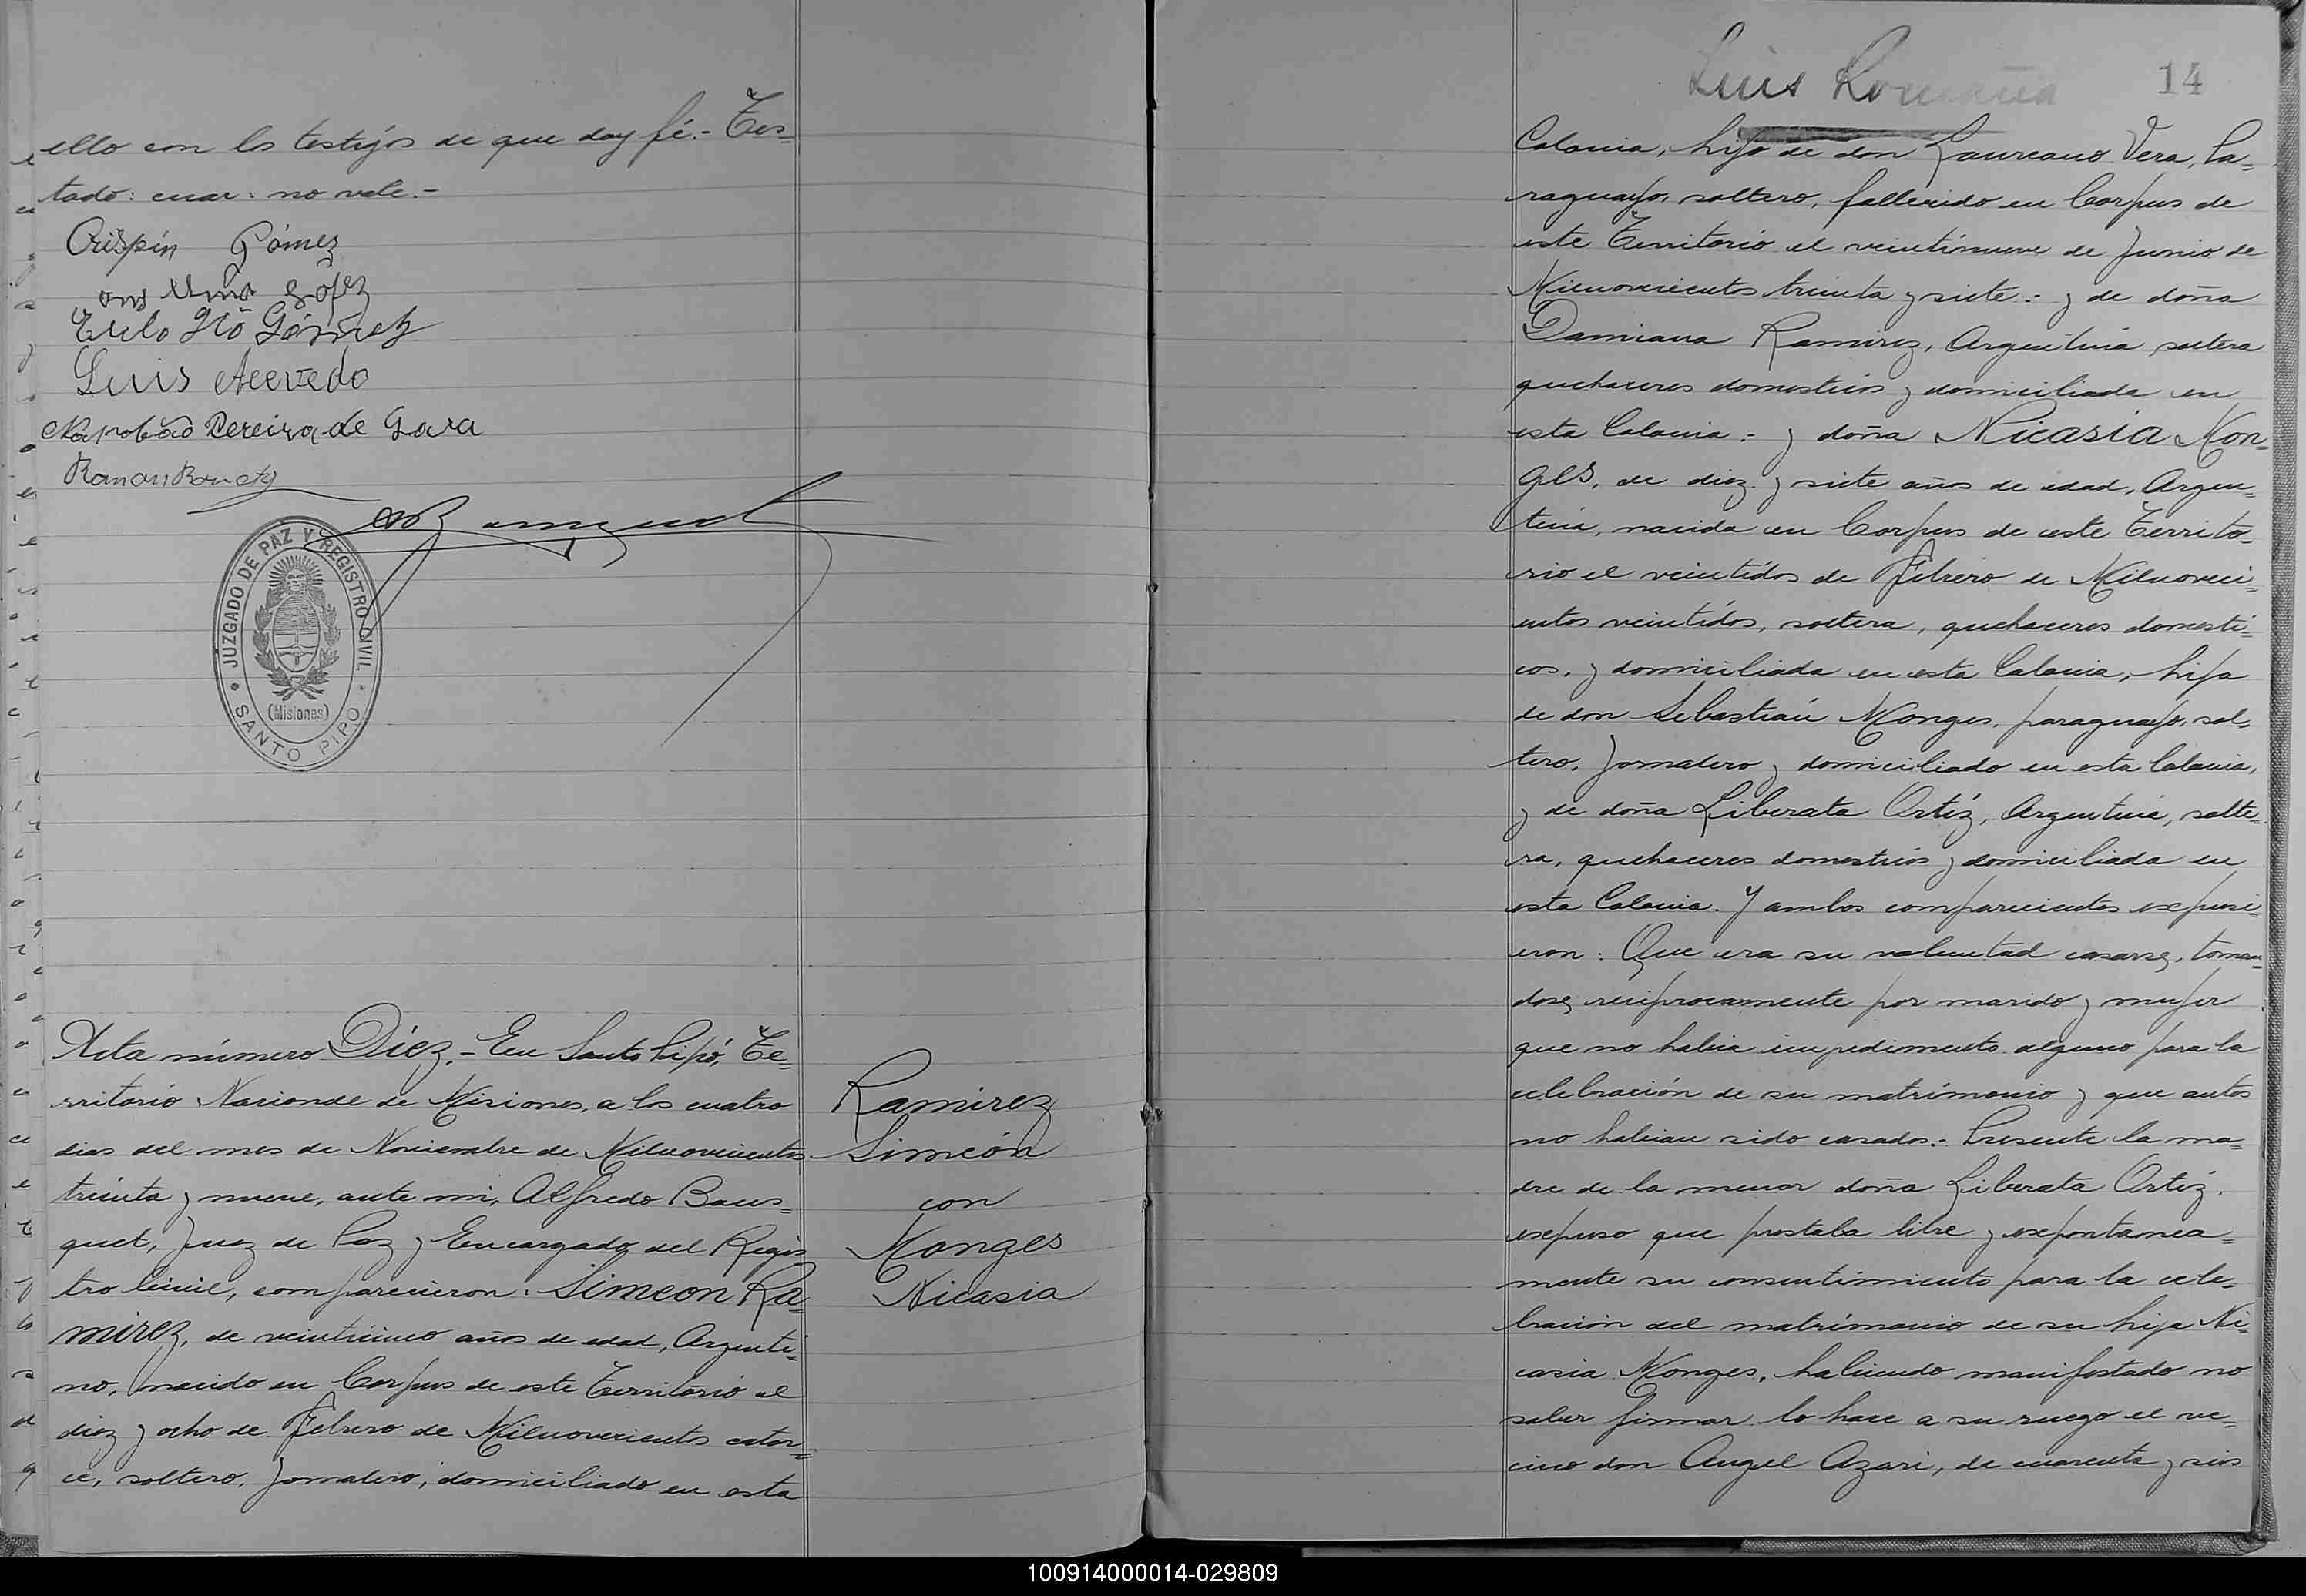 ello con los testigos de que doy fé.- Tes-
tado: cuar: no vale.-
Crispín Gómez
López
Luis Acevedo
Pereira de Gara
JUZGADO DE PAZ Y REGISTRO CIVIL
(Misiones)
SANTO PIPO
Acta número Diez.- En Santo Pipó, Te-
rritorio Nacional de Misiones, a los cuatro
dias del mes de Noviembre de Milnovecientos
treinta y nueve, ante mi, Alfredo Baus-
quet, Juez de Paz y Encargado del Regis-
tro Civil, comparecieron: Simeon Ra-
mirez, de veinticinco años de edad, Argenti-
no, nacido en Corpus de este Territorio el
diez y ocho de Febrero de Milnovecientos cator-
ce, soltero, Jornalero, domiciliado en esta
Ramirez
Simeón
con
Monges
Nicasia
Luis Romaña
14
Colonia, hijo de don Laureano Vera, Pa-
raguayo, soltero, fallecido en Corpus de
este Territorio el veintinueve de Junio de
Milnovecientos treinta y siete.- y de doña
Damiana Ramirez, Argentina, soltera
quehaceres domesticos y domiciliada en
esta Colonia.- y doña Nicasia Mon-
ges, de diez y siete años de edad, Argen-
tina, nacida en Corpus de este Territo-
rio el veintidos de Febrero de Milnoveci-
entos veintidós, soltera, quehaceres domesti-
cos, y domiciliada en esta Colonia, hija
de don Sebastián Monges, paraguayo, sol-
tero, Jornalero y domiciliado en esta Colonia,
y de doña Liberata Ortíz, Argentina, solte-
ra, quehaceres domesticos y domiciliada en
esta Colonia. Y ambos comparecientes expusi-
eron: Que era su voluntad casarse, toman-
dose reciprocamente por marido y mujer
que no habia impedimento alguno para la
celebración de su matrimonio y que antes
no habian sido casados.- Presente la ma-
dre de la menor doña Liberata Ortíz,
expuso que prestaba libre y expontanea-
mente su consentimiento para la cele-
bración del matrimonio de su hija Ni-
casia Monges, habiendo manifestado no
saber firmar lo hace a su ruego el ve-
cino don Angel Azari, de cuarenta y seis
100914000014-029809